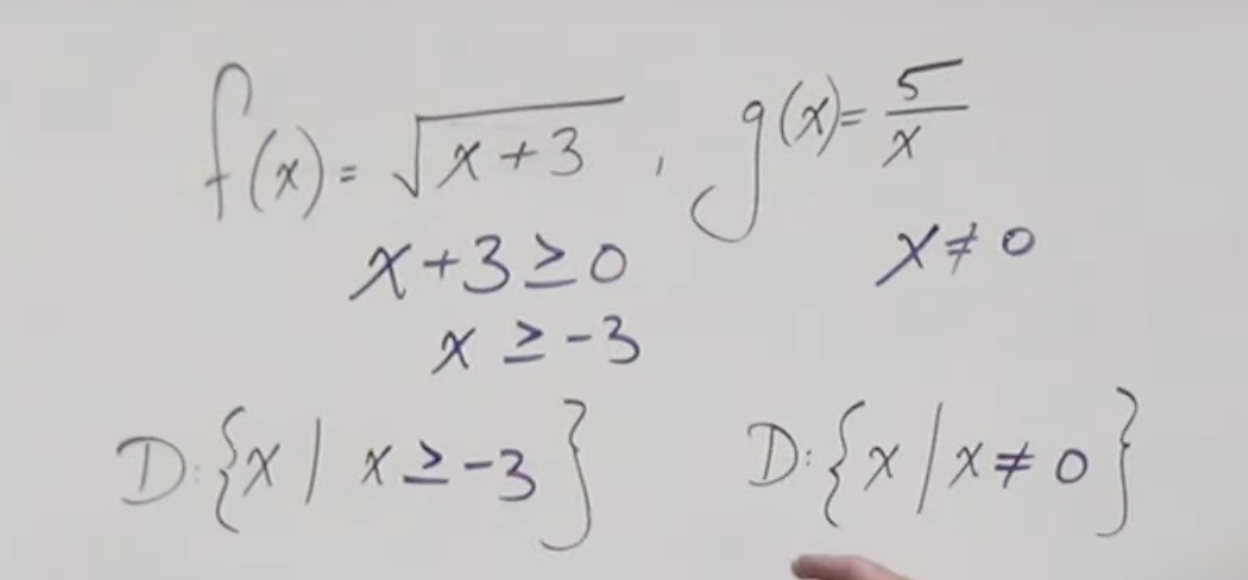 f(x) = √(x+3) , g(x) = 5/x
x+3 ≥ 0 x ≠ 0
x ≥ -3
D: {x | x ≥ -3} D: {x | x ≠ 0}